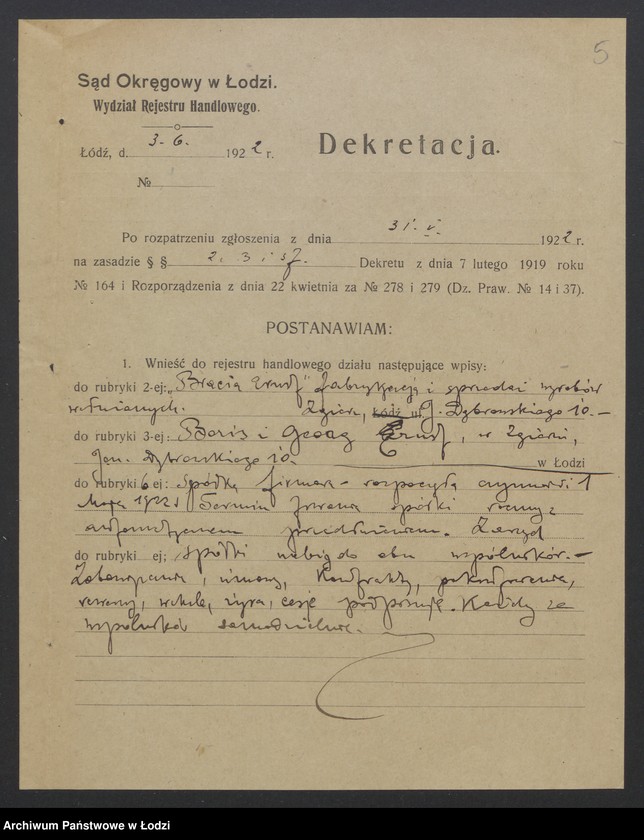 5
Sąd Okręgowy w Łodzi.
Wydział Rejestru Handlowego.
Łódź, d. 3-6. 1922 r.
Dekretacja.
№
Po rozpatrzeniu zgłoszenia z dnia 31. V. 1922 r.
na zasadzie § § 2, 3 i Dekretu z dnia 7 lutego 1919 roku
№ 164 i Rozporządzenia z dnia 22 kwietnia za № 278 i 279 (Dz. Praw. № 14 i 37).
POSTANAWIAM:
1. Wnieść do rejestru handlowego działu następujące wpisy:
do rubryki 2-ej: „Bracia Ernst" fabrykacja i sprzedaż wyrobów
wełnianych. Zgierz, Łódź ul. G. Dąbrowskiego 10. —
do rubryki 3-ej: Boris i Georg Ernst, w Zgierzu,
Gen. Dąbrowskiego 10. w Łodzi
do rubryki 6 ej: Spółka firmowa - rozpoczęła czynności 1
Maja 1922 Termin trwania spółki roczny z
automatycznem przedłużeniem. Zarząd
do rubryki ej; spółki należy do obu wspólników. —
Zobowiązania, umowy, kontrakty, pełnomocnictwa,
weksle, żyra, cesje podpisuje każdy ze
wspólników samodzielnie.
Archiwum Państwowe w Łodzi